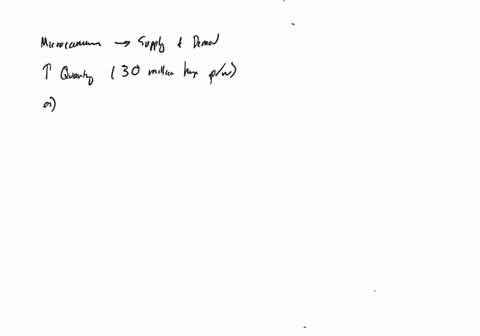 Microeconomics → Supply & Demand
↑ Quantity (30 million p/w)
a)